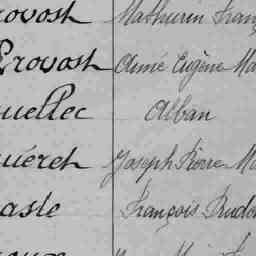 rovost Mathurin Fran
Provost Aimé Eugène Ma
uellec Alban
uéret Joseph Pierre M
aste François Prude